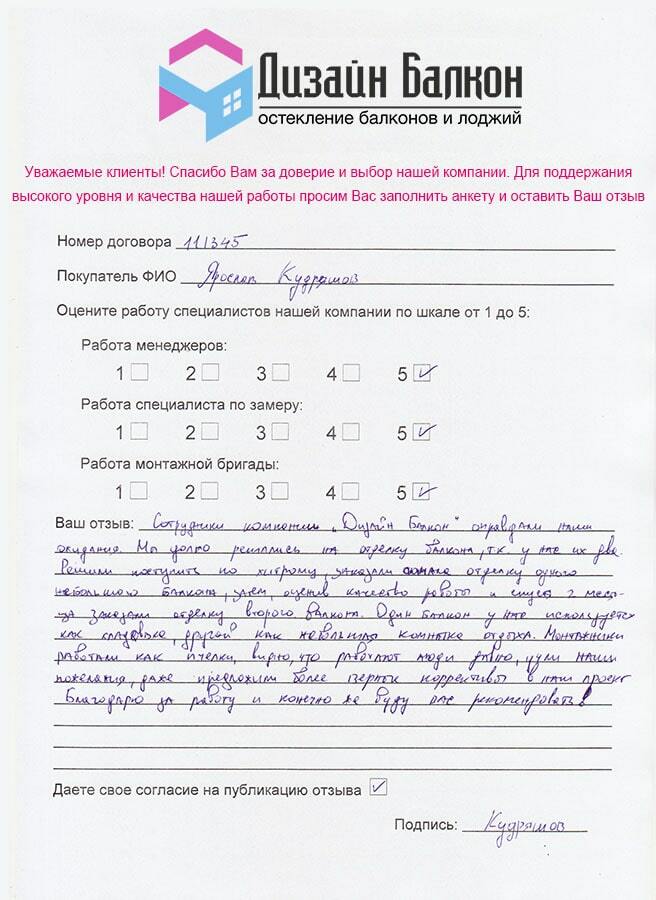 Дизайн Балкон
остекление балконов и лоджий
Уважаемые клиенты! Спасибо Вам за доверие и выбор нашей компании. Для поддержания
высокого уровня и качества нашей работы просим Вас заполнить анкету и оставить Ваш отзыв
Номер договора 11/345
Покупатель ФИО Ярослав Кудряшов
Оцените работу специалистов нашей компании по шкале от 1 до 5:
Работа менеджеров:
1 2 3 4 5 ✓
Работа специалиста по замеру:
1 2 3 4 5 ✓
Работа монтажной бригады:
1 2 3 4 5 ✓
Ваш отзыв: Сотрудники компании „Дизайн Балкон" оправдали наши
ожидания. Мы долго решались на отделку балкона, т.к. у нас их два.
Решили поступить по хитрому, заказали сначала отделку одного
небольшого балкона, затем, оценив качество работы и спустя 2 меся-
ца заказали отделку второго балкона. Один балкон у нас используется
как кладовка, другой как небольшая комната отдыха. Монтажники
работали как пчелки, видно, что работают люди давно, учли наши
пожелания, даже предложили более коррективы в наш проект
Благодарю за работу и конечно же буду вас рекомендовать!
Даете свое согласие на публикацию отзыва ✓
Подпись: Кудряшов